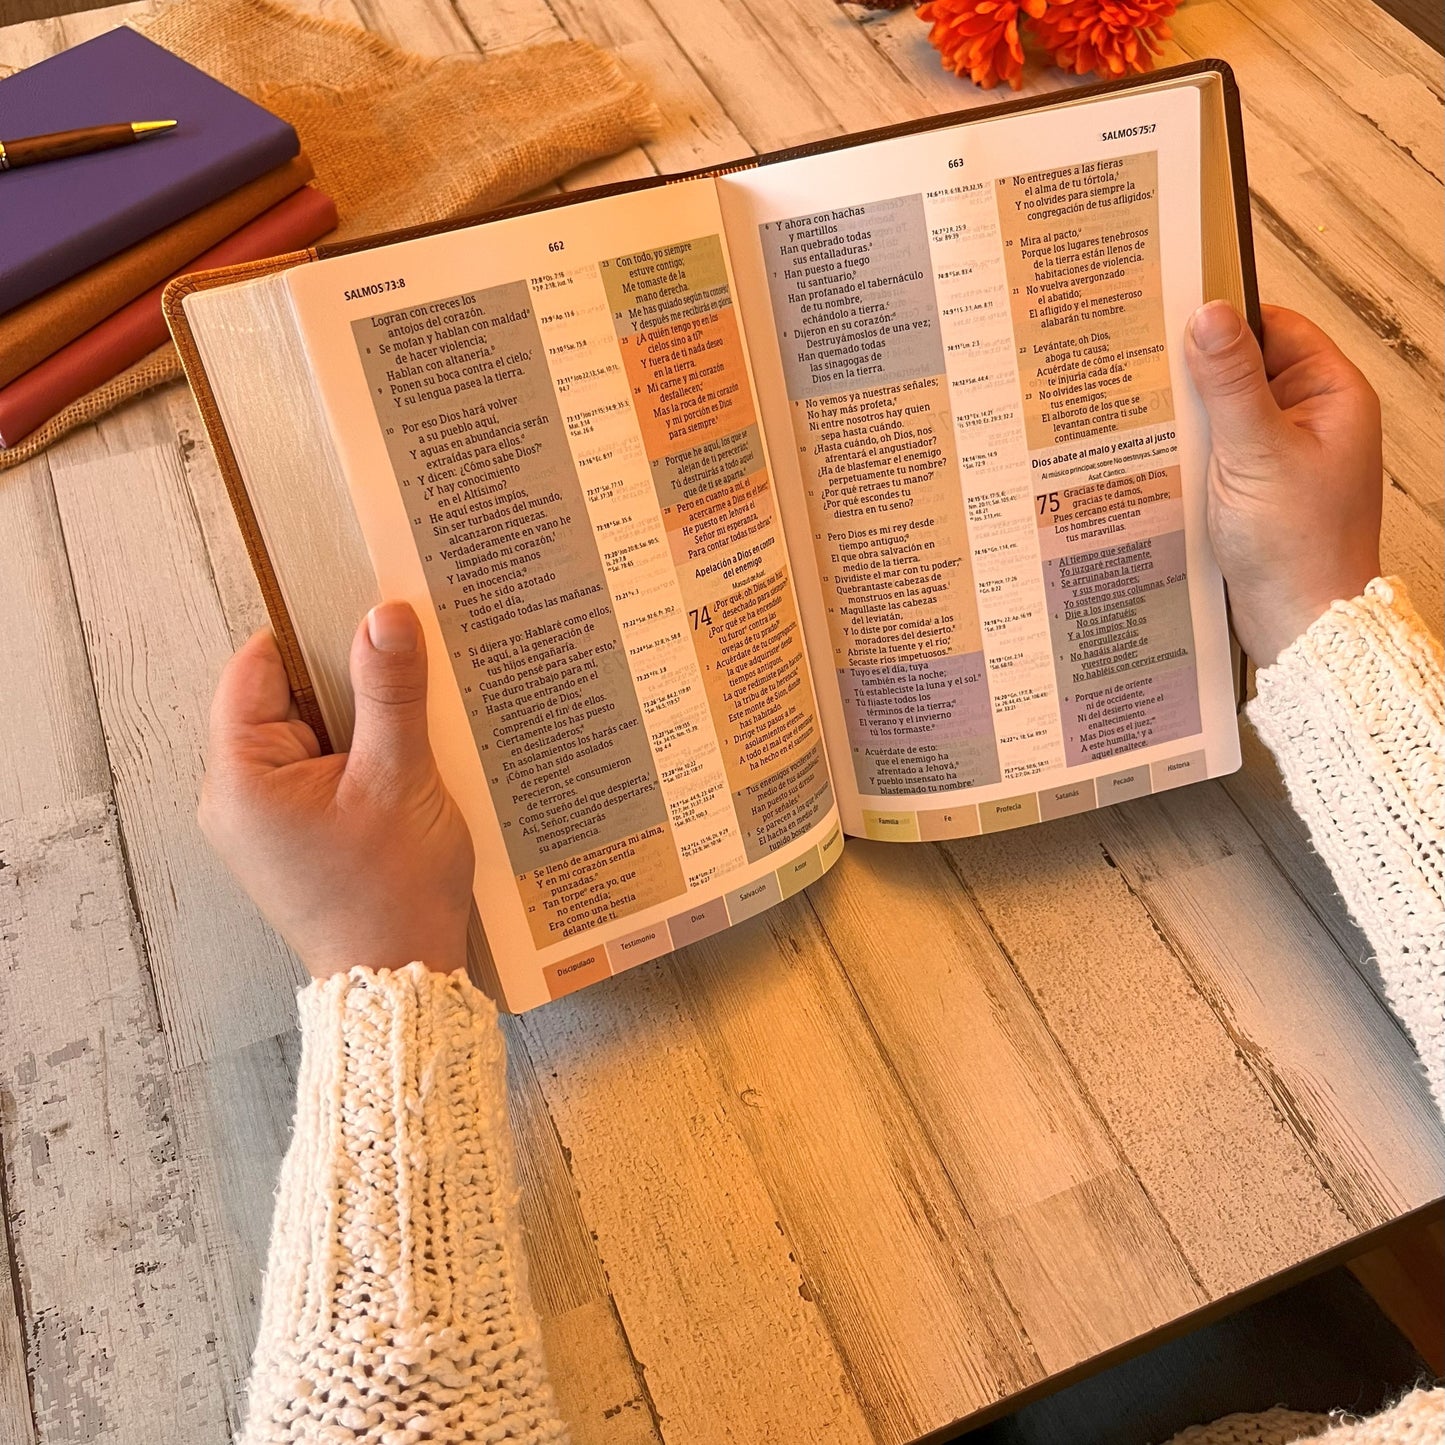 SALMOS 73:8
662
Logran con creces los
antojos del corazón.
8 Se mofan y hablan con maldad
de hacer violencia;
Hablan con altanería.
9 Ponen su boca contra el cielo,
Y su lengua pasea la tierra.
10 Por eso Dios hará volver
a su pueblo aquí,
Y aguas en abundancia serán
extraídas para ellos.
11 Y dicen: ¿Cómo sabe Dios?
¿Y hay conocimiento
en el Altísimo?
12 He aquí estos impíos,
Sin ser turbados del mundo,
alcanzaron riquezas.
13 Verdaderamente en vano he
limpiado mi corazón,
Y lavado mis manos
en inocencia;
14 Pues he sido azotado
todo el día,
Y castigado todas las mañanas.
15 Si dijera yo: Hablaré como ellos,
He aquí, a la generación de
tus hijos engañaría.
16 Cuando pensé para saber esto,
Fue duro trabajo para mí,
17 Hasta que entrando en el
santuario de Dios,
Comprendí el fin de ellos.
18 Ciertamente los has puesto
en deslizaderos;
En asolamientos los harás caer.
19 ¡Cómo han sido asolados
de repente!
Perecieron, se consumieron
de terrores.
20 Como sueño del que despierta,
Así, Señor, cuando despertares,
menospreciarás
su apariencia.
21 Se llenó de amargura mi alma,
Y en mi corazón sentía
punzadas.
22 Tan torpe era yo, que
no entendía;
Era como una bestia
delante de ti.
23 Con todo, yo siempre
estuve contigo;
Me tomaste de la
mano derecha.
24 Me has guiado según tu consejo,
Y después me recibirás en gloria.
25 ¿A quién tengo yo en los
cielos sino a ti?
Y fuera de ti nada deseo
en la tierra.
26 Mi carne y mi corazón
desfallecen;
Mas la roca de mi corazón
y mi porción es Dios
para siempre.
27 Porque he aquí, los que se
alejan de ti perecerán;
Tú destruirás a todo aquel
que de ti se aparta.
28 Pero en cuanto a mí, el
acercarme a Dios es el bien;
He puesto en Jehová el
Señor mi esperanza,
Para contar todas tus obras
Apelación a Dios en contra
del enemigo
Masquil de Asaf.
74 ¿Por qué, oh Dios, nos has
desechado para siempre?
¿Por qué se ha encendido
tu furor contra las
ovejas de tu prado?
2 Acuérdate de tu congregación,
la que adquiriste desde
tiempos antiguos,
La que redimiste para hacerla
la tribu de tu herencia;
Este monte de Sion, donde
has habitado.
3 Dirige tus pasos a los
asolamientos eternos,
A todo el mal que el enemigo
ha hecho en el santuario
4 Tus enemigos vociferan en
medio de tus asambleas;
Han puesto sus divisas
por señales.
5 Se parecen a los que levantan
El hacha en medio de
tupido bosque.
Discipulado
Testimonio
Dios
Salvación
Amor
663
SALMOS 75:7
6 Y ahora con hachas
y martillos
Han quebrado todas
sus entalladuras.
7 Han puesto a fuego
tu santuario,
Han profanado el tabernáculo
de tu nombre,
echándolo a tierra.
8 Dijeron en su corazón:
Destruyámoslos de una vez;
Han quemado todas
las sinagogas de
Dios en la tierra.
9 No vemos ya nuestras señales;
No hay más profeta,
Ni entre nosotros hay quien
sepa hasta cuándo.
10 ¿Hasta cuándo, oh Dios, nos
afrentará el angustiador?
¿Ha de blasfemar el enemigo
perpetuamente tu nombre?
11 ¿Por qué retraes tu mano?
¿Por qué escondes tu
diestra en tu seno?
12 Pero Dios es mi rey desde
tiempo antiguo;
El que obra salvación en
medio de la tierra.
13 Dividiste el mar con tu poder;
Quebrantaste cabezas de
monstruos en las aguas.
14 Magullaste las cabezas
del leviatán,
Y lo diste por comida a los
moradores del desierto.
15 Abriste la fuente y el río;
Secaste ríos impetuosos.
16 Tuyo es el día, tuya
también es la noche;
Tú estableciste la luna y el sol.
17 Tú fijaste todos los
términos de la tierra;
El verano y el invierno
tú los formaste.
18 Acuérdate de esto:
que el enemigo ha
afrentado a Jehová,
Y pueblo insensato ha
blasfemado tu nombre.
19 No entregues a las fieras
el alma de tu tórtola,
Y no olvides para siempre la
congregación de tus afligidos.
20 Mira al pacto,
Porque los lugares tenebrosos
de la tierra están llenos de
habitaciones de violencia.
21 No vuelva avergonzado
el abatido;
El afligido y el menesteroso
alabarán tu nombre.
22 Levántate, oh Dios,
aboga tu causa;
Acuérdate de cómo el insensato
te injuria cada día.
23 No olvides las voces de
tus enemigos;
El alboroto de los que se
levantan contra ti sube
continuamente.
Dios abate al malo y exalta al justo
Al músico principal; sobre No destruyas. Salmo de
Asaf. Cántico.
75 Gracias te damos, oh Dios,
gracias te damos,
Pues cercano está tu nombre;
Los hombres cuentan
tus maravillas.
2 Al tiempo que señalaré
Yo juzgaré rectamente.
3 Se arruinaban la tierra
y sus moradores;
Yo sostengo sus columnas. Selah
4 Dije a los insensatos:
No os infatuéis;
Y a los impíos: No os
enorgullezcáis;
5 No hagáis alarde de
vuestro poder;
No habléis con cerviz erguida.
6 Porque ni de oriente
ni de occidente,
Ni del desierto viene el
enaltecimiento.
7 Mas Dios es el juez;
A este humilla, y a
aquel enaltece.
Familia
Fe
Profecía
Satanás
Pecado
Historia